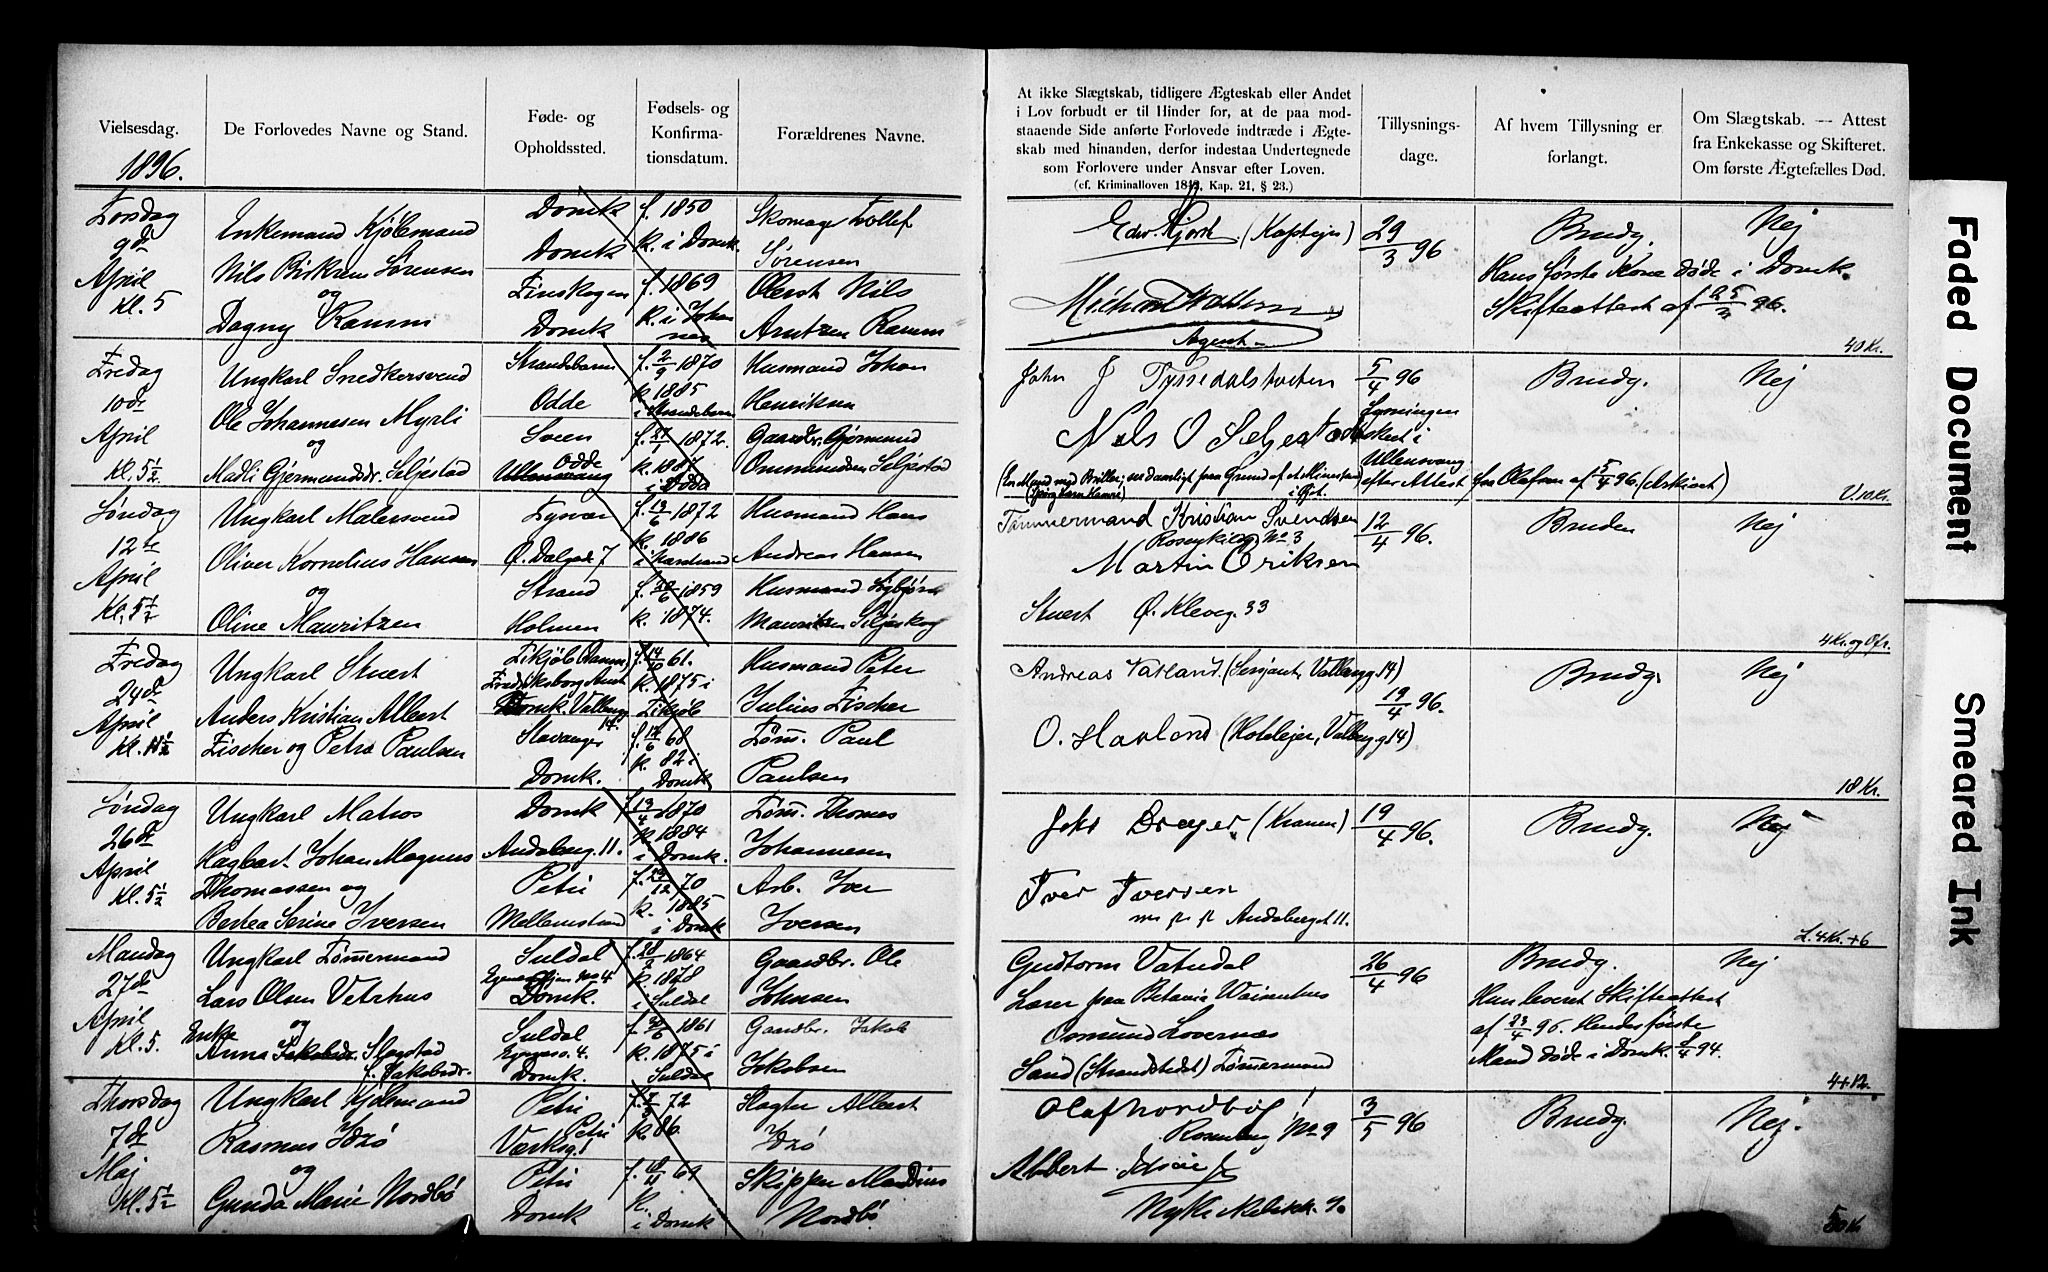 Vielsesdag.
1896.
De Forlovedes Navne og Stand.
Føde- og
Opholdssted.
Fødsels- og
Konfirma-
tionsdatum.
Forældrenes Navne.
At ikke Slægtskab, tidligere Ægteskab eller Andet
i Lov forbudt er til Hinder for, at de paa mod-
staaende Side anførte Forlovede indtræde i Ægte-
skab med hinanden, derfor indestaa Undertegnede
som Forlovere under Ansvar efter Loven.
(cf. Kriminalloven 1842, Kap. 21, § 23.)
Tillysnings-
dage.
Af hvem Tillysning er
forlangt.
Om Slægtskab. — Attest
fra Enkekasse og Skifteret.
Om første Ægtefælles Død.
Torsdag
9de
April
Kl. 5
Enkemand Kjøbmand
Nils Sørensen
og
Dagny Ramm
Domk
Domk
Domk
f. 1850
k. i Domk.
f. 1869
k. i Johan
nes
Skomager Tollef
Sørensen
Nils
Arntzen Ramm
(Kaptejn)
Agent
29/3 96
Brudg.
Nej
Hans første Kone døde i Domk.
Skifteattest af 25/3 96.
40 Kr.
Fredag
10de
April
Kl. 5½
Ungkarl Snedkersvend
Ole Johannesen Myrli
og
Madli Gjermundsdr. Seljestad
Strandebarm
Odde
Odde
Ullensvang
f. 2/9 1870
k. 1885
i Strandebarm
f. 27/7 1872.
k. 1887
i Odda
Husmand Johan
Henriksen
Gaardbr. Gjermund
Ommundsen Seljestad
John J Tyssedalstveten
Nels O Seljestad
5/4 96
Lysningen
skert i
Ullensvang
efter Attest fra Olafsen af 5/4 96.
Brudg.
Nej
10 Kr.
Søndag
12te
April
Kl. 5½
Ungkarl Malersvend
Oliver Kornelius Hansen
og
Oline Mauritzen
Tysvær
Ø. Dalgade 7
Strand
Holmen
f. 19/6 1872
k. 1886
f. 20/6 1859
k. 1874.
Husmand Hans
Andreas Hansen
Husmand
Mauritzen
Tømmermand Kristian Svendsen
No 3
Martin Eriksen
Stuert Ø. Kleveg. 33
12/4 96.
Bruden
Nej
4 Kr. og Ofr.
Fredag
24de
April
Ungkarl Stuert
Anders Kristian Albert
Fischer og Petra Paulsen
Tikjøb
Frederiksborg Amt
Domk. Valbergg
14.
Stavanger
Domk.
f. 14/6 61.
k. 1875 i
Tikjøb
f. 12/6 68
k. 82 i
Domk
Husmand Peter
Julius Fischer
Tøm. Paul
Paulsen
Andreas Varland. (Sersjant, Valbergg 14)
O. Havland (Valbergg 14)
19/4 96.
Brudg.
Nej
18 Kr.
Søndag
26de
April
Kl. 5½
Ungkarl Matros
Hagbart Johan Magnus
Thomassen og
Bertea Serine Iversen
Domk
Andaberg. 11.
Petri
Mellemstrand
f. 19/4 1870
k. 1884
i Domk.
f. 29/12 70
k. 1885
i Domk
Tøm. Thomas
Johannesen
Arb. Iver
Iversen
Dreyer (Kranen)
Iver Iversen
m. p. p. Andabergt 11.
19/4 96.
Brudg.
Nej
L. 4 Kr. + 6
Mandag
27de
April
Kl. 5.
Ungkarl Tømmermand
Lars Olsen Vetrhus
og
Enke
Anna Jakobsdr. Slogstad
f. Jakobsdr.
Suldal
Domk.
Suldal
Domk.
1864
k. 1878
i Suldal
1861
k. 1875 i
Suldal
Gaardbr. Ole
Johnsen
Gaardbr. Jakob
Jakobsen
Gudtorm Vatndal
Lærer paa Betania Waisenhus
Osmund Lovernæs
Sand (Strandstedet) Tømmermand
26/4 96
Brudg.
Nej
Hun leveret Skifteattest
af 23/4 96. Hendes første
Mand døde i Domk. 94.
4+12.
Thorsdag
7de
Maj
Kl. 5½
Ungkarl Kjøbmand
Rasmus Idsø
og
Gunda Marie Nordbø
Petri
Petri
Værksg 1
Petri
Domk
72
k. 86.
69
k.
i Domk
Slagter Albert
Idsø
Skipper Mandius
Nordbø
Olaf Nordbø
No 9
Albert Idsøe
3/5 96
Brudg.
Nej.
50 Kr
Faded Document
Smeared Ink